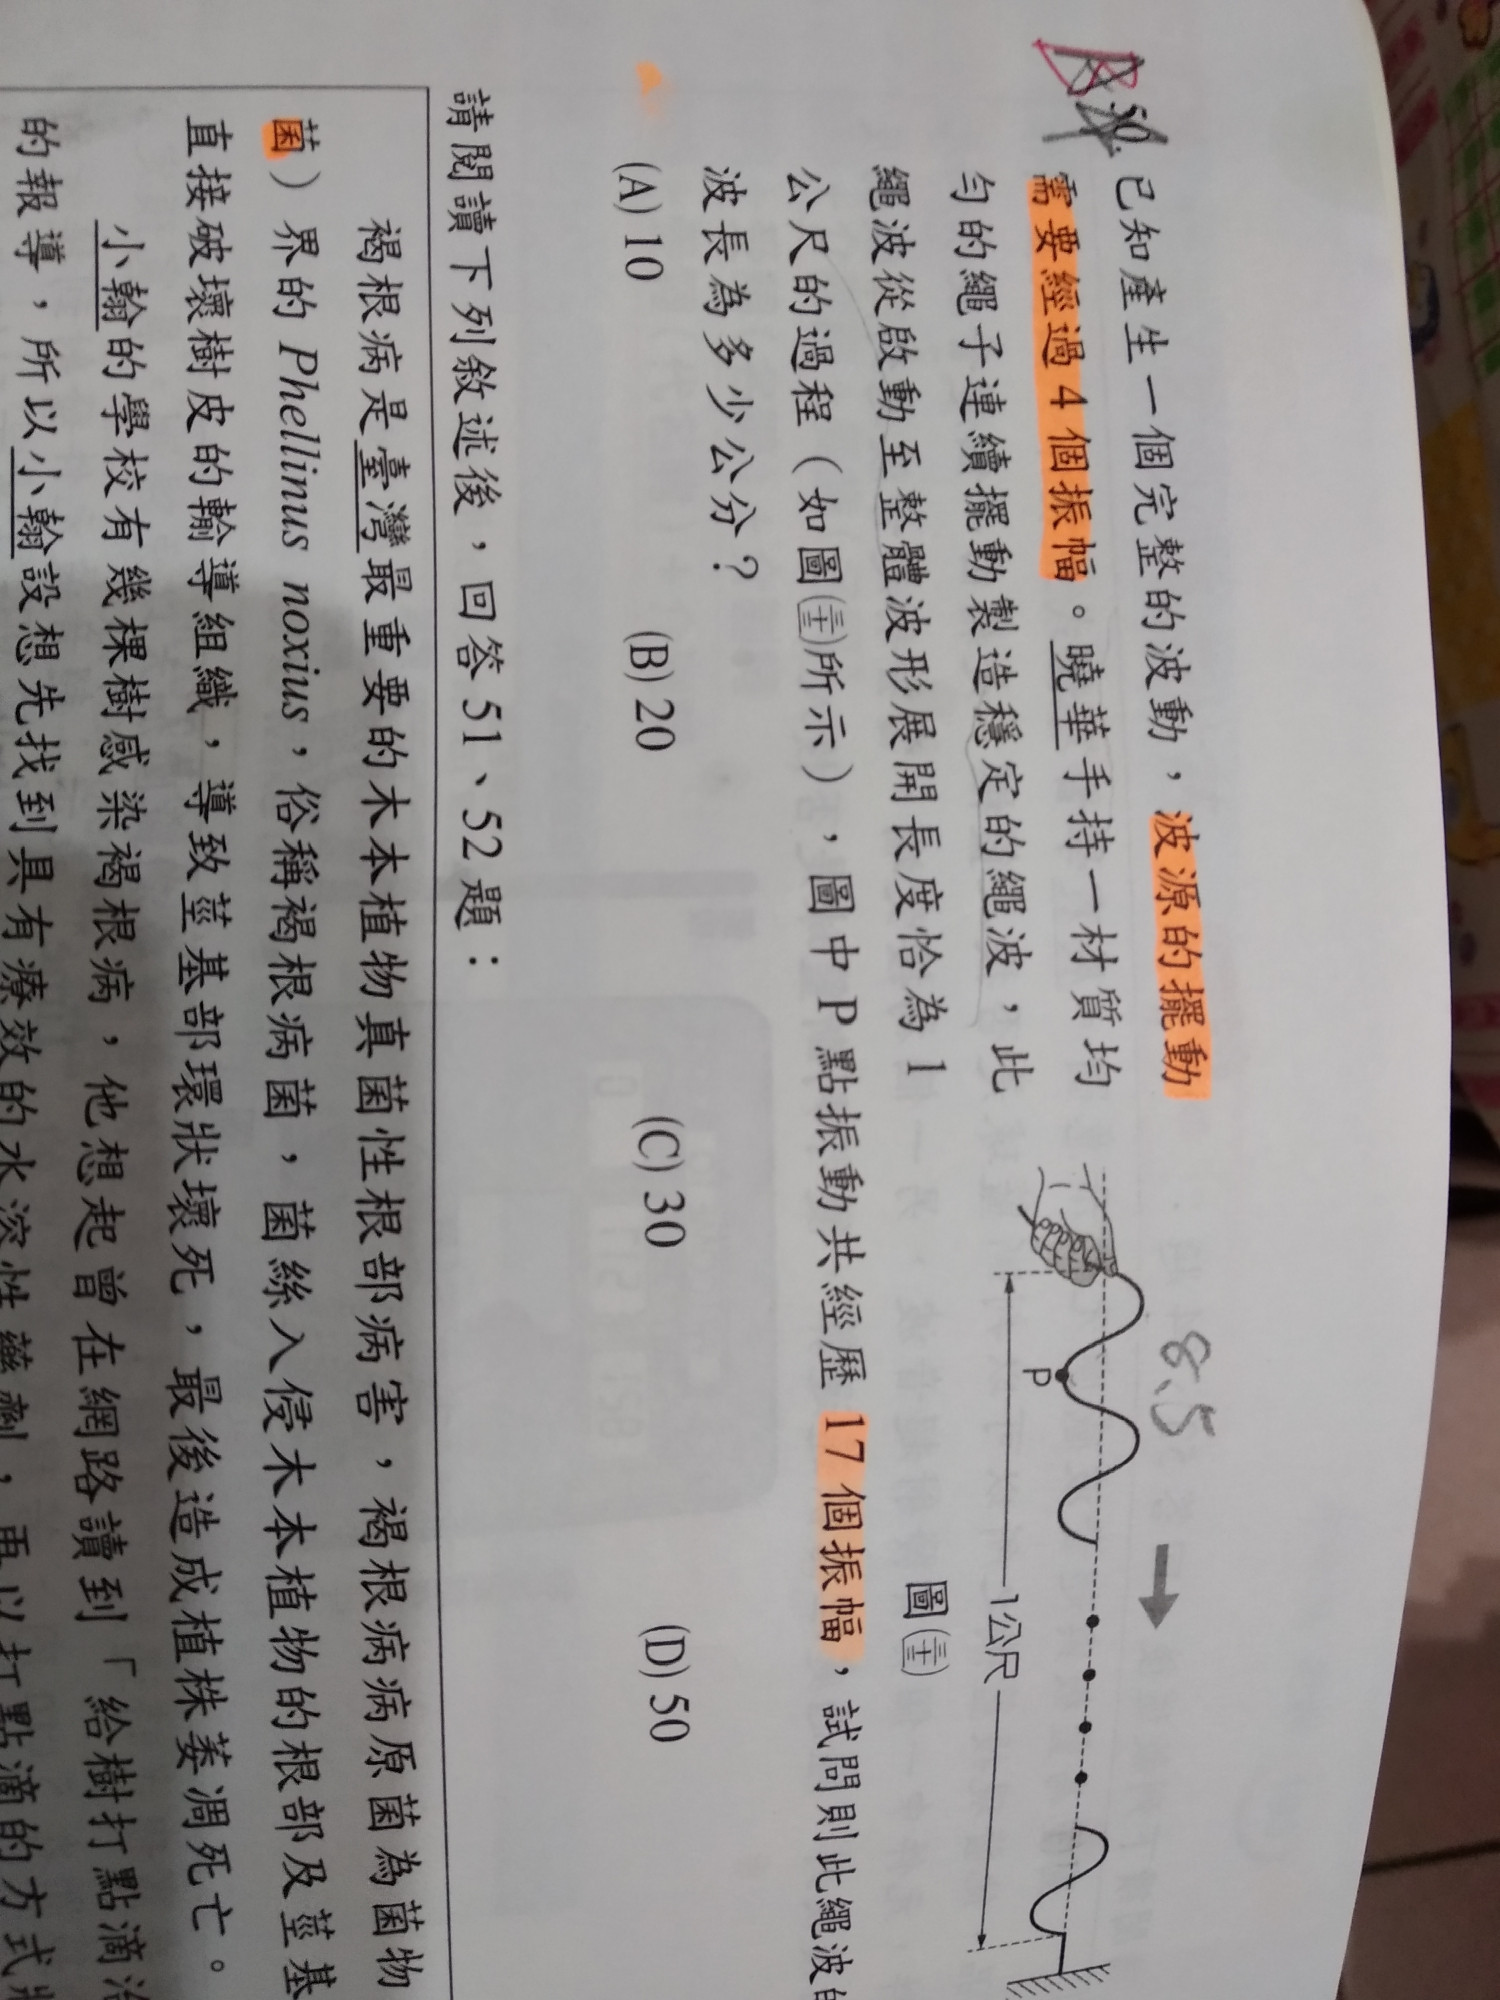 B
50. 已知產生一個完整的波動，波源的擺動
需要經過 4 個振幅。曉華手持一材質均
勻的繩子連續擺動製造穩定的繩波，此
繩波從啟動至整體波形展開長度恰為 1
公尺的過程（如圖(三十)所示），圖中 P 點振動共經歷 17 個振幅，試問則此繩波的
波長為多少公分？
8.5
P
1公尺
圖(三十)
(A) 10 (B) 20 (C) 30 (D) 50
請閱讀下列敘述後，回答 51、52 題：
褐根病是臺灣最重要的木本植物真菌性根部病害，褐根病病原菌為菌物
菌）界的 Phellinus noxius，俗稱褐根病菌，菌絲入侵木本植物的根部及莖基
直接破壞樹皮的輸導組織，導致莖基部環狀壞死，最後造成植株萎凋死亡。
小翰的學校有幾棵樹感染褐根病，他想起曾在網路讀到「給樹打點滴治
的報導，所以小翰設想先找到具有療效的水溶性藥劑，再以打點滴的方式